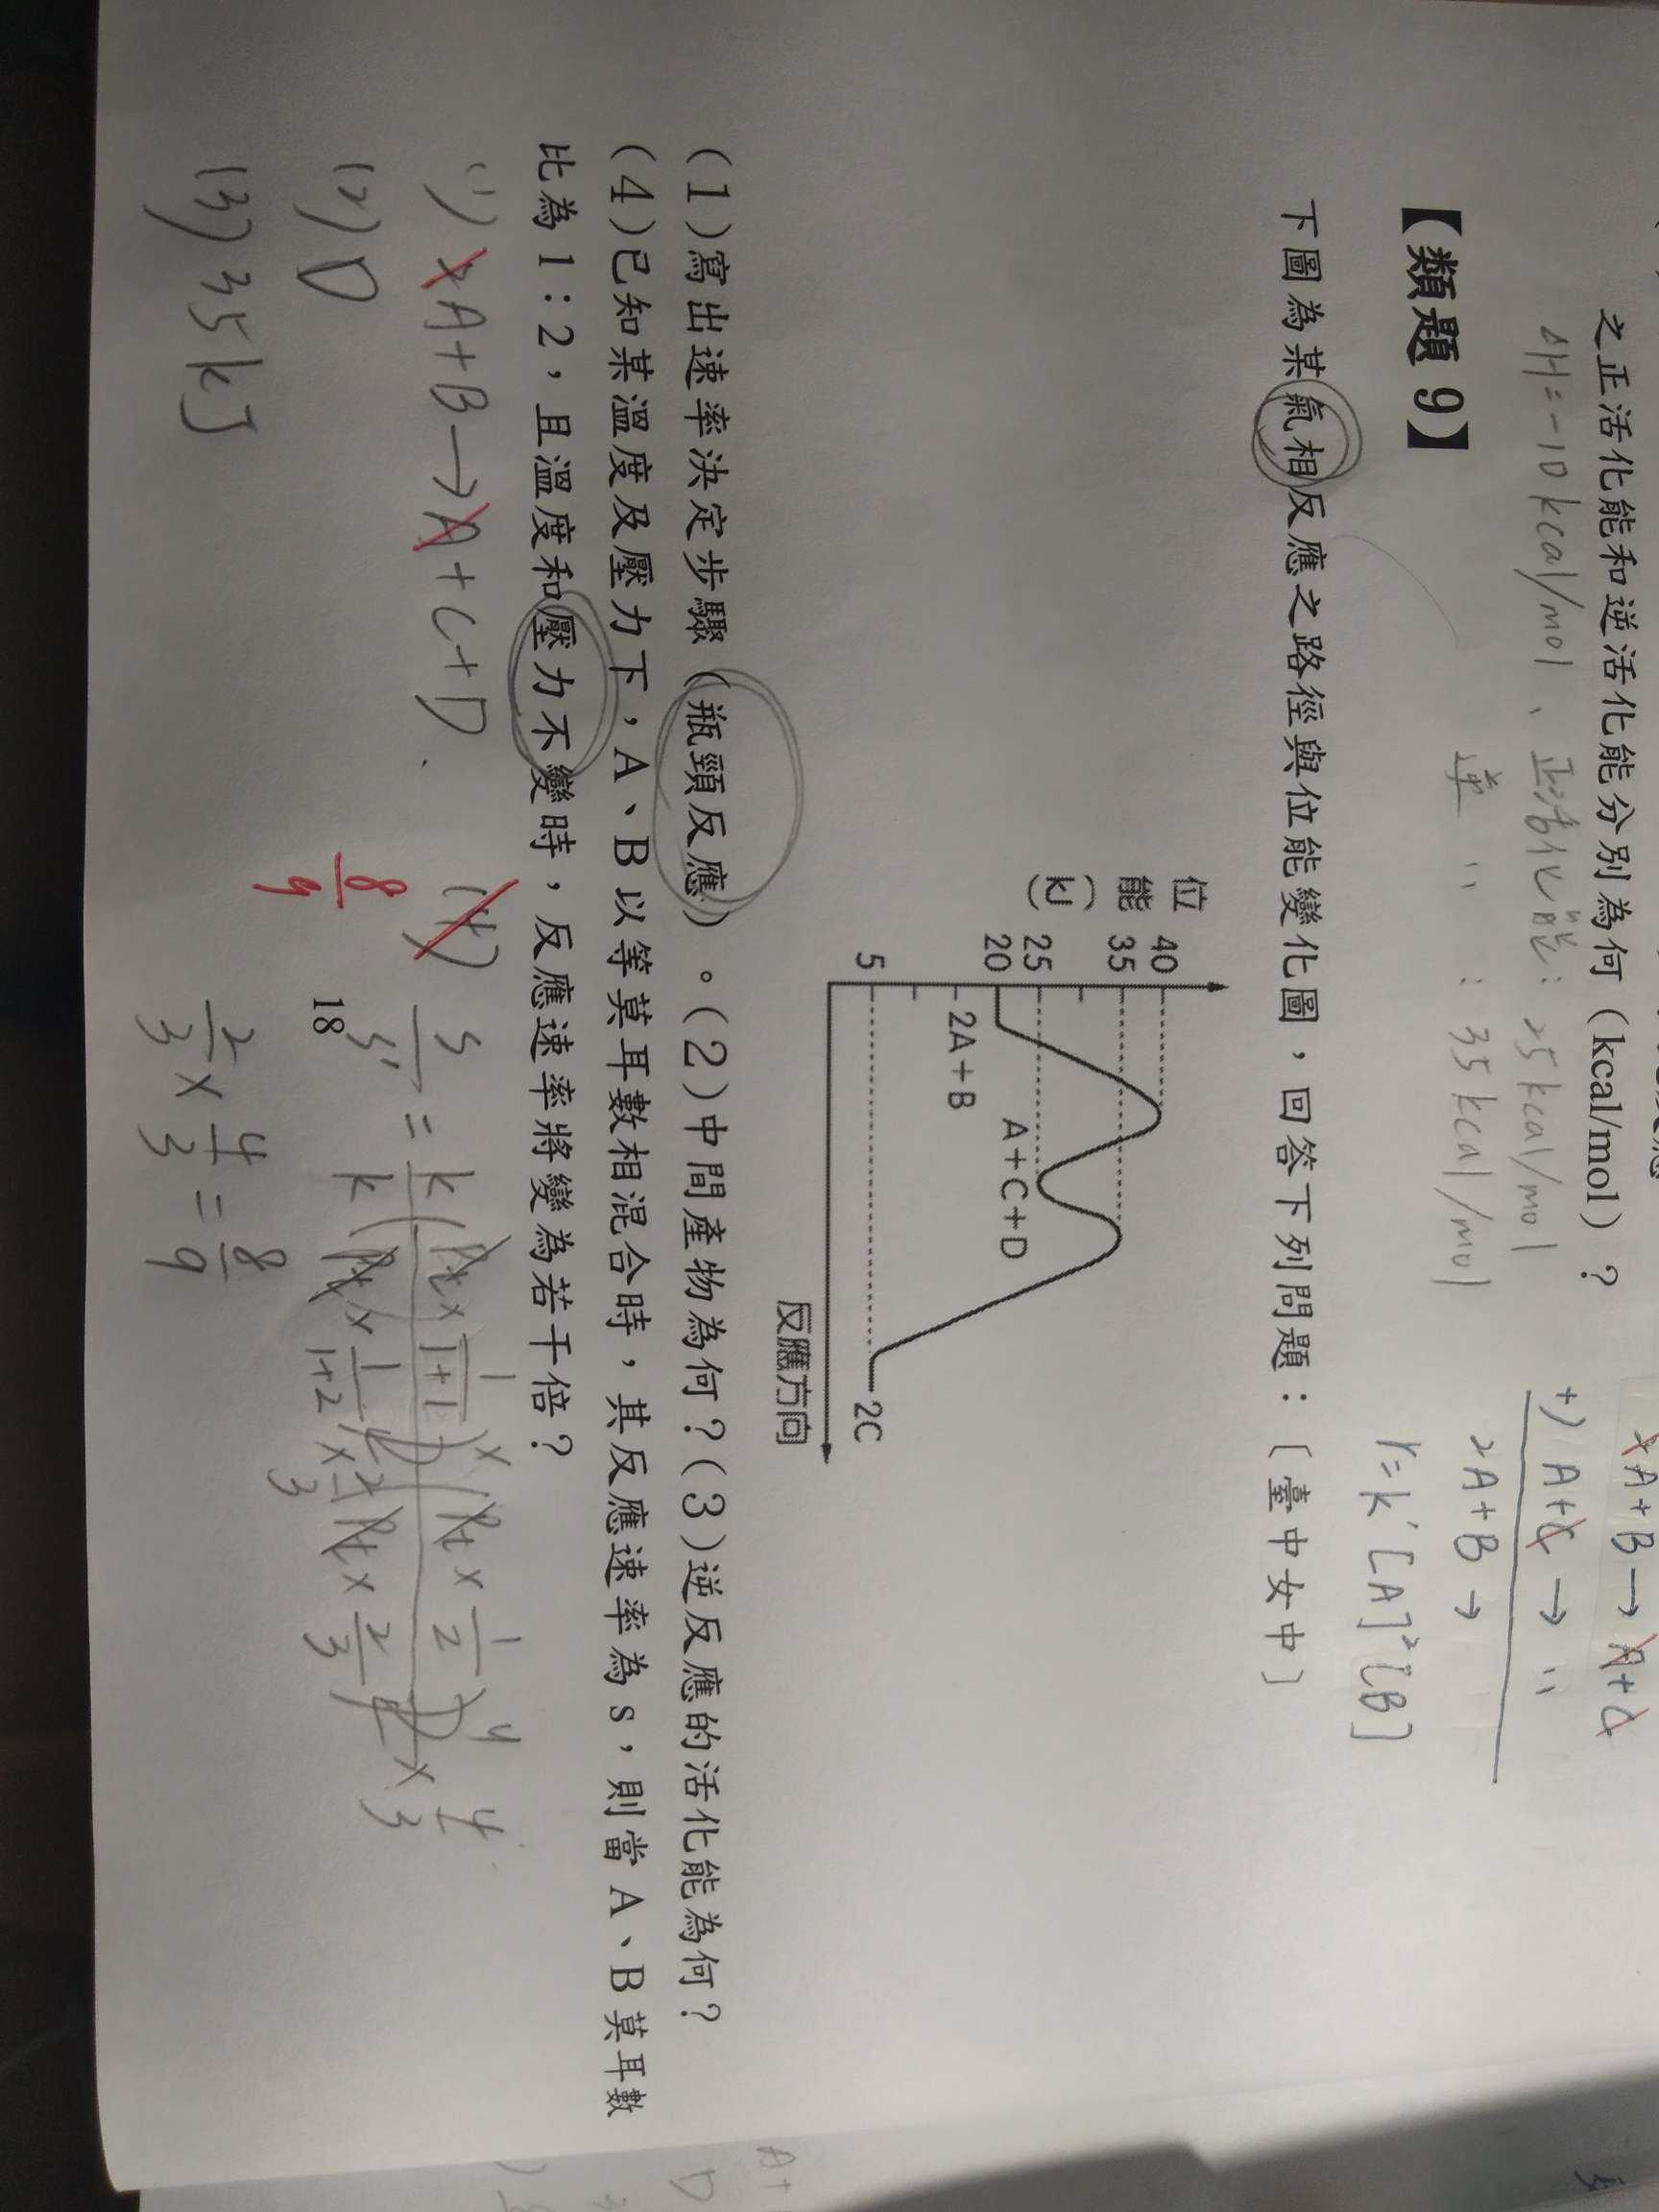 之正活化能和逆活化能分別為何(kcal/mol)?
ΔH=-10kcal/mol、正活化能:25kcal/mol
逆 〃 : 35kcal/mol
2A+B→A+C
+) A+C → 〃
2A+B →
r=k'[A]²[B]
【類題 9】
下圖為某氣相反應之路徑與位能變化圖,回答下列問題:〔臺中女中〕
位能(kJ)
40
35
25
20
5
2A+B
A+C+D
2C
反應方向
(1)寫出速率決定步驟(瓶頸反應)。(2)中間產物為何?(3)逆反應的活化能為何?
(4)已知某溫度及壓力下,A、B以等莫耳數相混合時,其反應速率為s,則當A、B莫耳數
比為1:2,且溫度和壓力不變時,反應速率將變為若干倍?
(1) 2A+B→A+C+D
(2) D
(3) 35kJ
(4)
8/9
s/s' = k(Pt×1/1+1)ˣ(Pt×1/2)ʸ
k(Pt×1/1+2)(Pt×2/3)
×2/3
×4/3
2/3×4/3=8/9
18